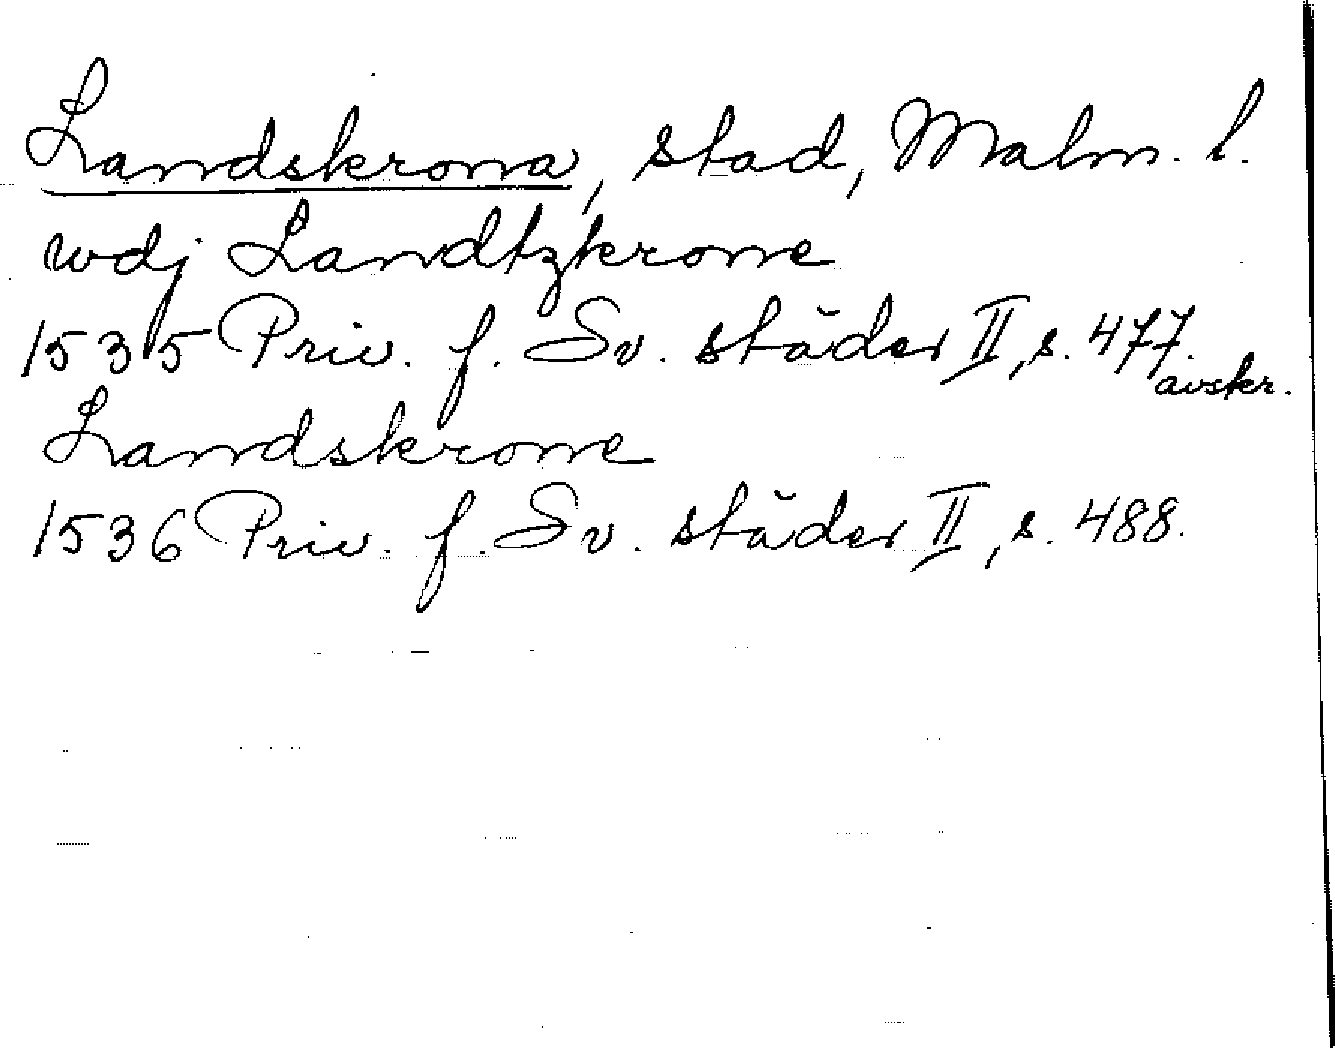 Landskrona, stad, Malm. l.
wdj Landtzkrone
1535 Priv. f. Sv. städer II, s. 477.
avskr.
Landskrone
1536 Priv. f. Sv. städer II, s. 488.